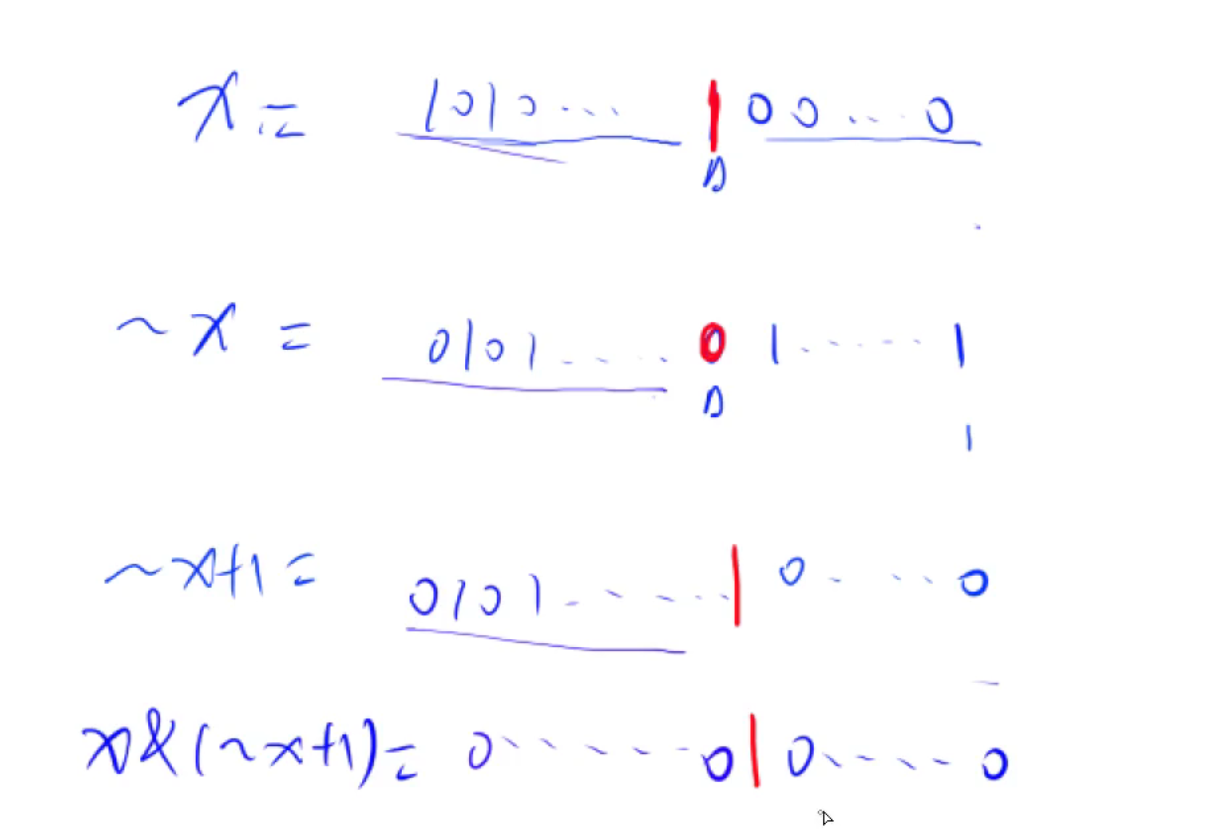 x = 1010... 1 00...0
~x = 0101.... 0 1......1
1
~x+1 = 0101...... 1 0....0
x&(~x+1) = 0......0 1 0.....0